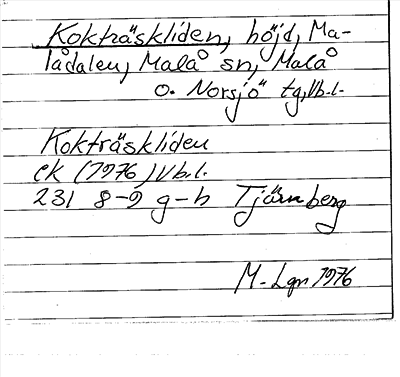 Kokträskliden, höjd, Ma-
lådalen, Malå sn, Malå
o. Norsjö tg, Vb.l.
Kokträskliden
ek (1976) Vb.l.
231 8-9 g-h Tjärnberg
M-Lgn 1976